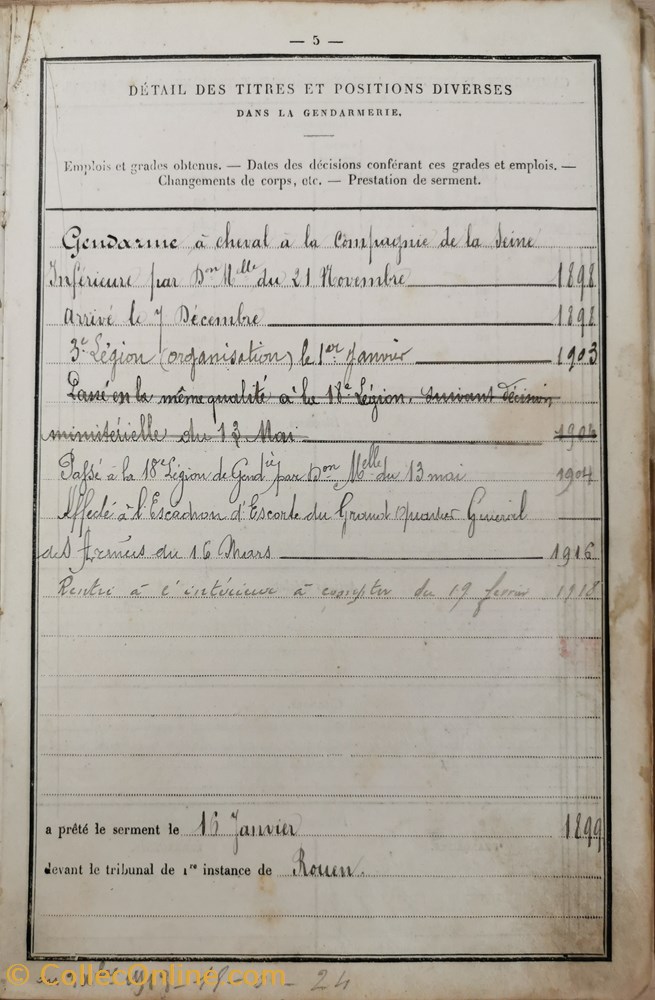 — 5 —
DÉTAIL DES TITRES ET POSITIONS DIVERSES
DANS LA GENDARMERIE.
Emplois et grades obtenus. — Dates des décisions conférant ces grades et emplois. —
Changements de corps, etc. — Prestation de serment.
Gendarme à cheval à la Compagnie de la Seine
Inférieure par Don Melle du 21 Novembre 1898
Arrivé le 7 Décembre 1898
3e Légion (organisation) le 1er Janvier 1903
Passé en la même qualité à la 18e Légion. suivant décision
ministérielle du 13 Mai 1904
Passé à la 18e Légion de Gendie par Don Melle du 13 mai 1904
Affecté à l'Escadron d'Escorte du Grand Quartier Général
des Armées du 16 Mars 1916
Rentré à l'intérieur à compter du 19 février 1918
a prêté le serment le 16 Janvier 1899
devant le tribunal de 1re instance de Rouen.
© CollecOnline.com
24